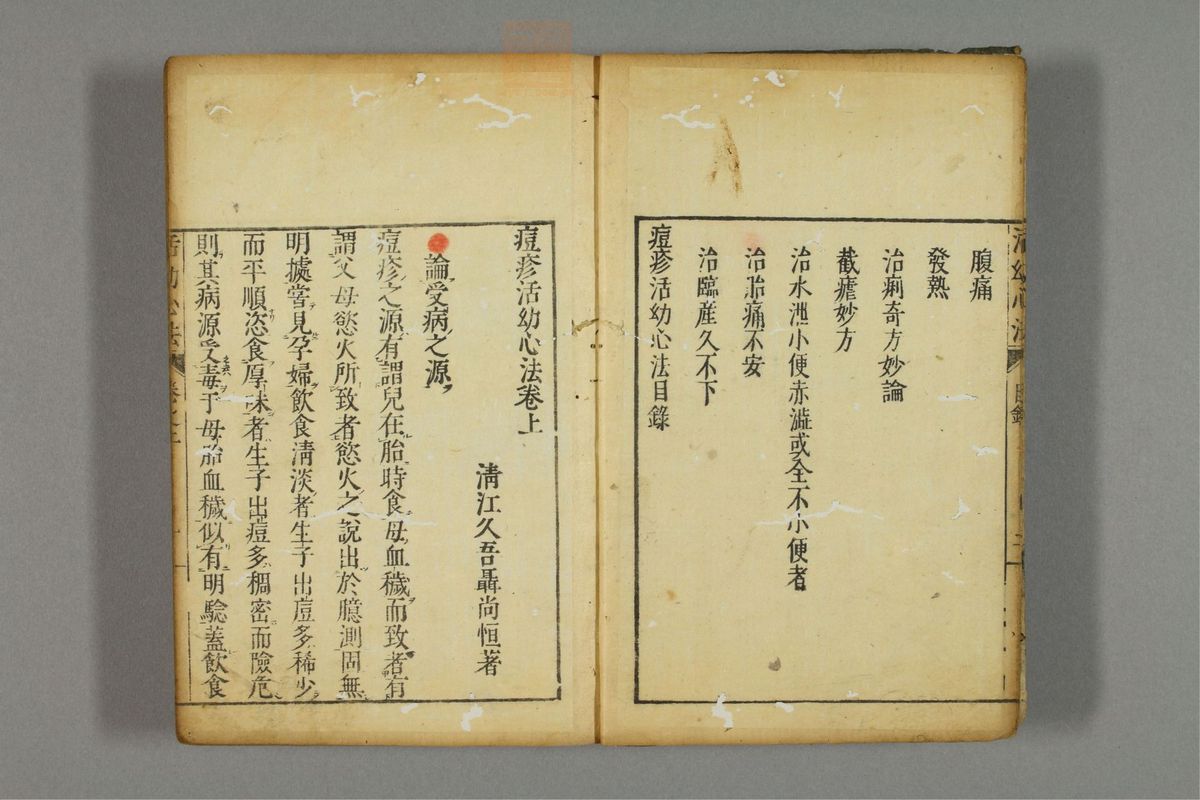 腹痛
發熱
治痢奇方妙論
截瘧妙方
治水泄小便赤澁或全不小便者
治胎痛不安
治臨產久不下
痘疹活幼心法目錄
痘疹活幼心法卷上
清江久吾聶尚恒著
論受病之源
痘疹之源有謂兒在胎時食母血穢而致者有
謂父母慾火所致者慾火之說出於臆測固無
明據嘗見孕婦飲食淸淡者生子出痘多稀少
而平順恣食厚味者生子出痘多稠密而險危
則其病源受毒于母胎血穢似有明驗蓋飲食